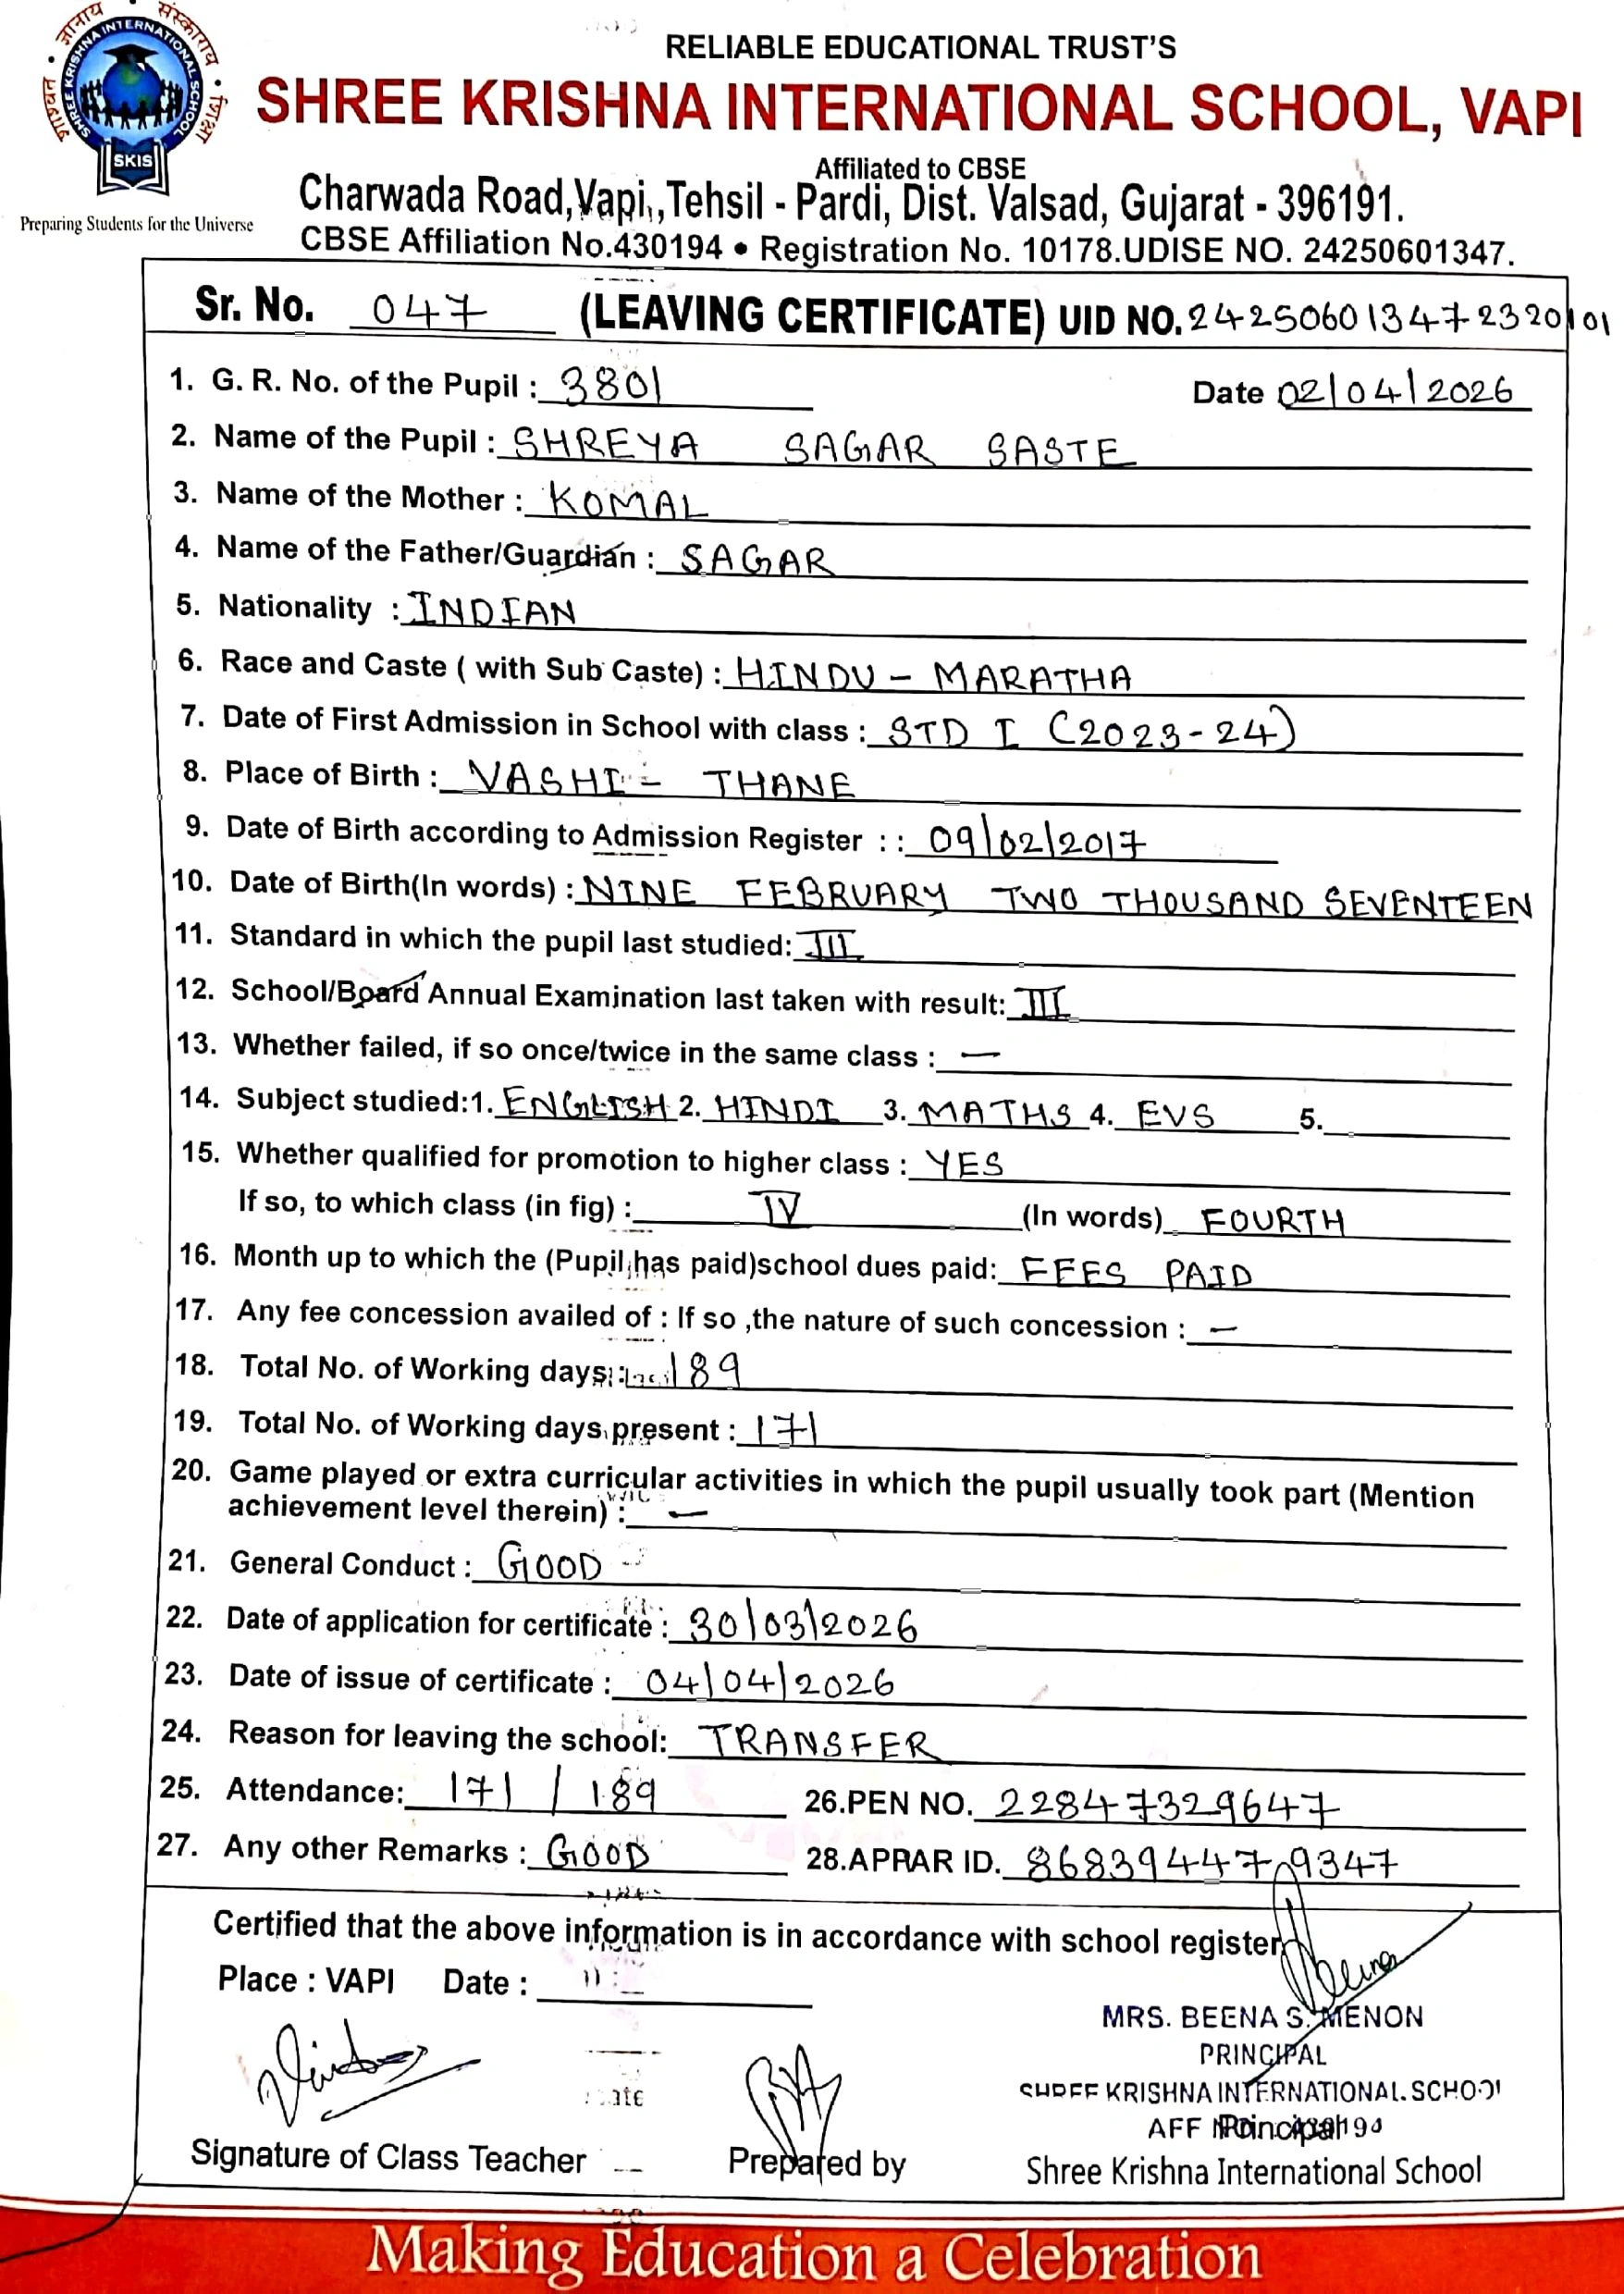 ज्ञानाय
संस्काराय
RELIABLE EDUCATIONAL TRUST'S
SHREE KRISHNA INTERNATIONAL SCHOOL
SKIS
SHREE KRISHNA INTERNATIONAL SCHOOL, VAPI
Affiliated to CBSE
Charwada Road,Vapi,,Tehsil - Pardi, Dist. Valsad, Gujarat - 396191.
Preparing Students for the Universe
CBSE Affiliation No.430194 • Registration No. 10178.UDISE NO. 24250601347.
Sr. No. 047 (LEAVING CERTIFICATE) UID NO. 242506013472320101
1. G. R. No. of the Pupil : 3801 Date 02/04/2026
2. Name of the Pupil : SHREYA SAGAR SASTE
3. Name of the Mother : KOMAL
4. Name of the Father/Guardian : SAGAR
5. Nationality : INDIAN
6. Race and Caste ( with Sub Caste) : HINDU - MARATHA
7. Date of First Admission in School with class : STD I (2023-24)
8. Place of Birth : VASHI - THANE
9. Date of Birth according to Admission Register : : 09/02/2017
10. Date of Birth(In words) : NINE FEBRUARY TWO THOUSAND SEVENTEEN
11. Standard in which the pupil last studied: III
12. School/Board Annual Examination last taken with result: III
13. Whether failed, if so once/twice in the same class : —
14. Subject studied:1. ENGLISH 2. HINDI 3. MATHS 4. EVS 5.
15. Whether qualified for promotion to higher class : YES
If so, to which class (in fig) : IV (In words) FOURTH
16. Month up to which the (Pupil has paid)school dues paid: FEES PAID
17. Any fee concession availed of : If so ,the nature of such concession : —
18. Total No. of Working days: 189
19. Total No. of Working days present : 171
20. Game played or extra curricular activities in which the pupil usually took part (Mention
achievement level therein) : —
21. General Conduct : GOOD
22. Date of application for certificate : 30/03/2026
23. Date of issue of certificate : 04/04/2026
24. Reason for leaving the school: TRANSFER
25. Attendance: 171 / 189 26.PEN NO. 22847329647
27. Any other Remarks : GOOD 28.APRAR ID. 868394479347
Certified that the above information is in accordance with school register
Place : VAPI Date :
MRS. BEENA S. MENON
PRINCIPAL
SHREE KRISHNA INTERNATIONAL SCHOOL
AFF
Principal
Signature of Class Teacher Prepared by Shree Krishna International School
Making Education a Celebration